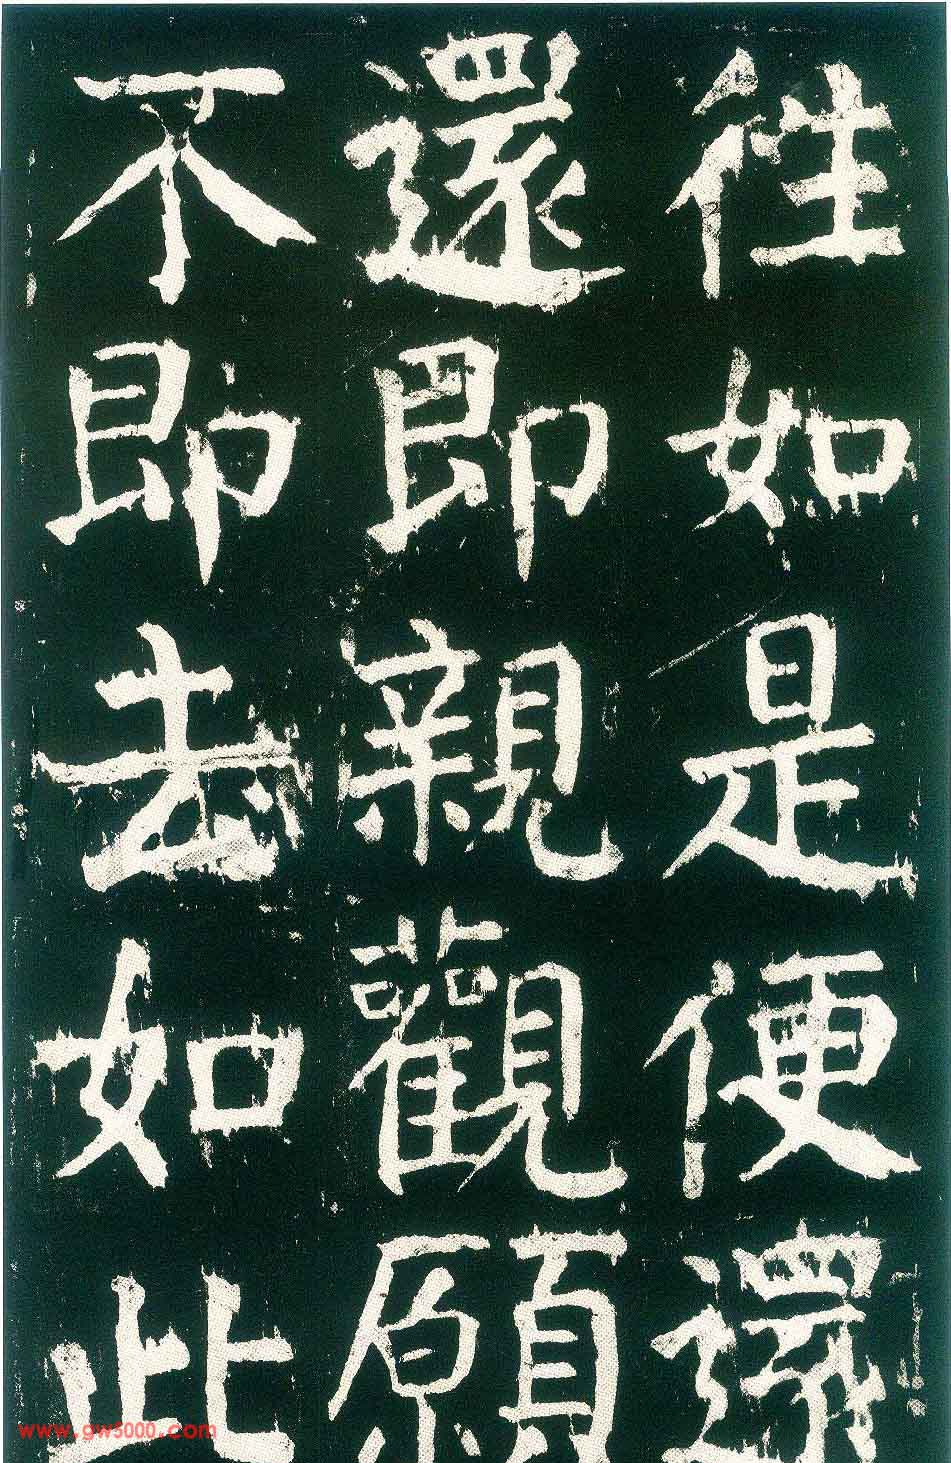 往如是便還
還即親觀願
不即去如此
www.gw5000.com